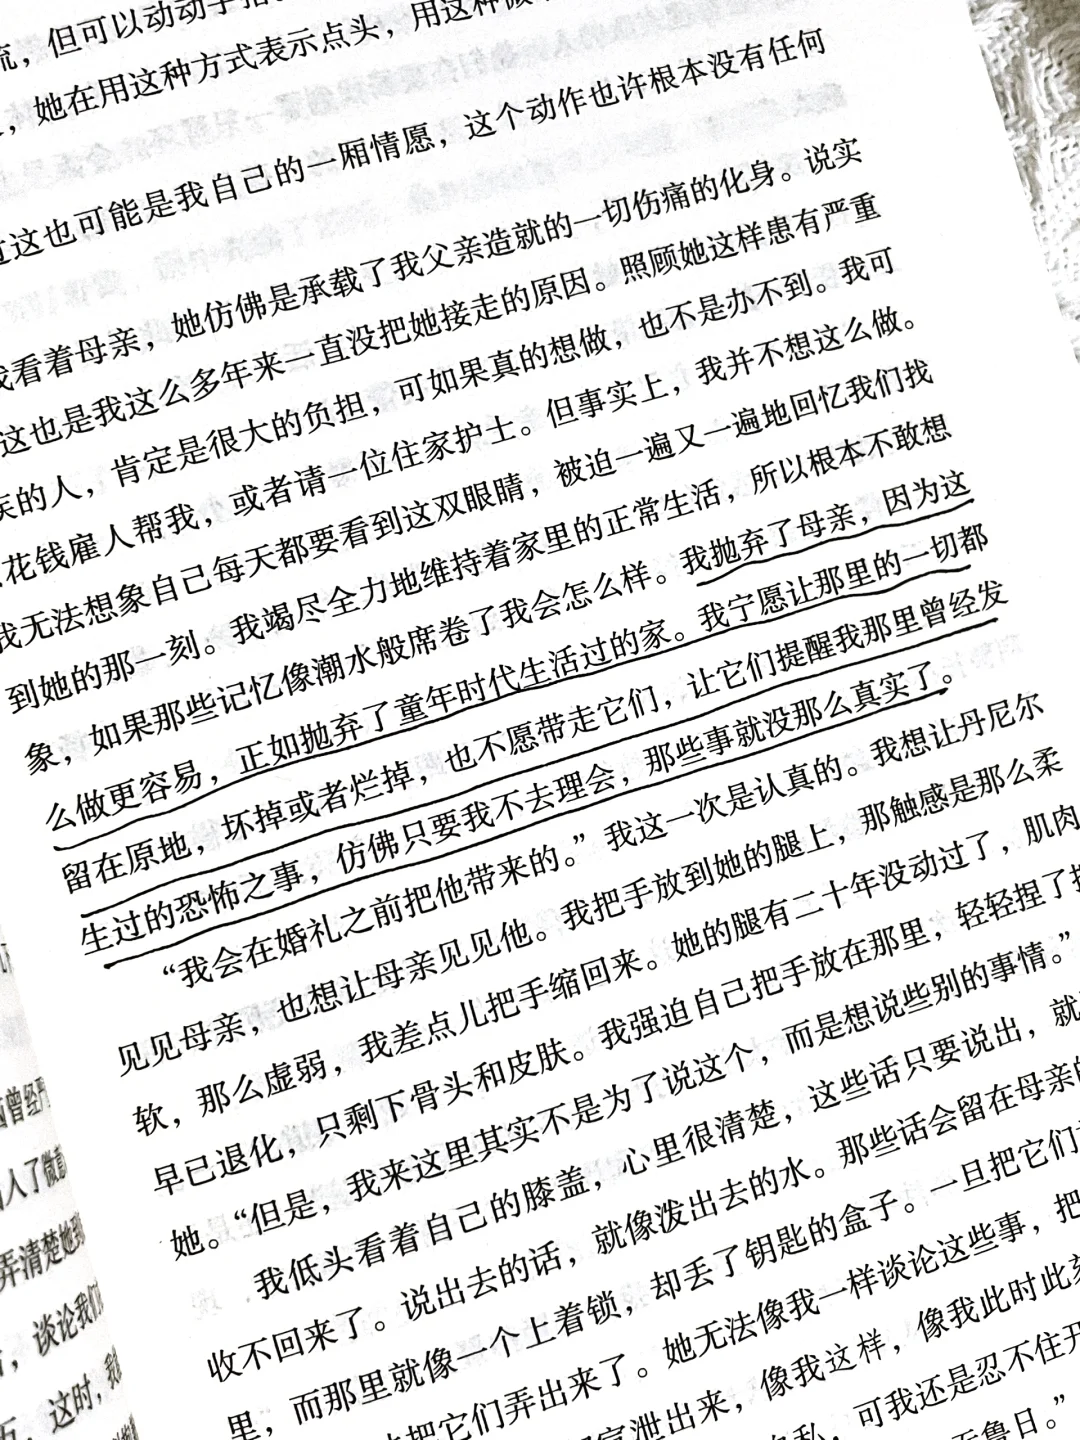 流，但可以动动手指
，她在用这种方式表示点头，用这种微
过这也可能是我自己的一厢情愿，这个动作也许根本没有任何
我看着母亲，她仿佛是承载了我父亲造就的一切伤痛的化身。说实
这也是我这么多年来一直没把她接走的原因。照顾她这样患有严重
疾的人，肯定是很大的负担，可如果真的想做，也不是办不到。我可
花钱雇人帮我，或者请一位住家护士。但事实上，我并不想这么做。
我无法想象自己每天都要看到这双眼睛，被迫一遍又一遍地回忆我们找
到她的那一刻。我竭尽全力地维持着家里的正常生活，所以根本不敢想
象，如果那些记忆像潮水般席卷了我会怎么样。我抛弃了母亲，因为这
么做更容易，正如抛弃了童年时代生活过的家。我宁愿让那里的一切都
留在原地，坏掉或者烂掉，也不愿带走它们，让它们提醒我那里曾经发
生过的恐怖之事，仿佛只要我不去理会，那些事就没那么真实了。
“我会在婚礼之前把他带来的。”我这一次是认真的。我想让丹尼尔
见见母亲，也想让母亲见见他。我把手放到她的腿上，那触感是那么柔
软，那么虚弱，我差点儿把手缩回来。她的腿有二十年没动过了，肌肉
早已退化，只剩下骨头和皮肤。我强迫自己把手放在那里，轻轻捏了捏
她。“但是，我来这里其实不是为了说这个，而是想说些别的事情。”
我低头看着自己的膝盖，心里很清楚，这些话只要说出，就
收不回来了。说出去的话，就像泼出去的水。那些话会留在母亲的
里，而那里就像一个上着锁，却丢了钥匙的盒子。一旦把它们
把它们弄出来了。她无法像我一样谈论这些事，把
宣泄出来，像我这样，像我此时此刻
自私，可我还是忍不住开
无鲁日。”
曾经
人了微
弄清楚她到
，谈论我们
，这时，我